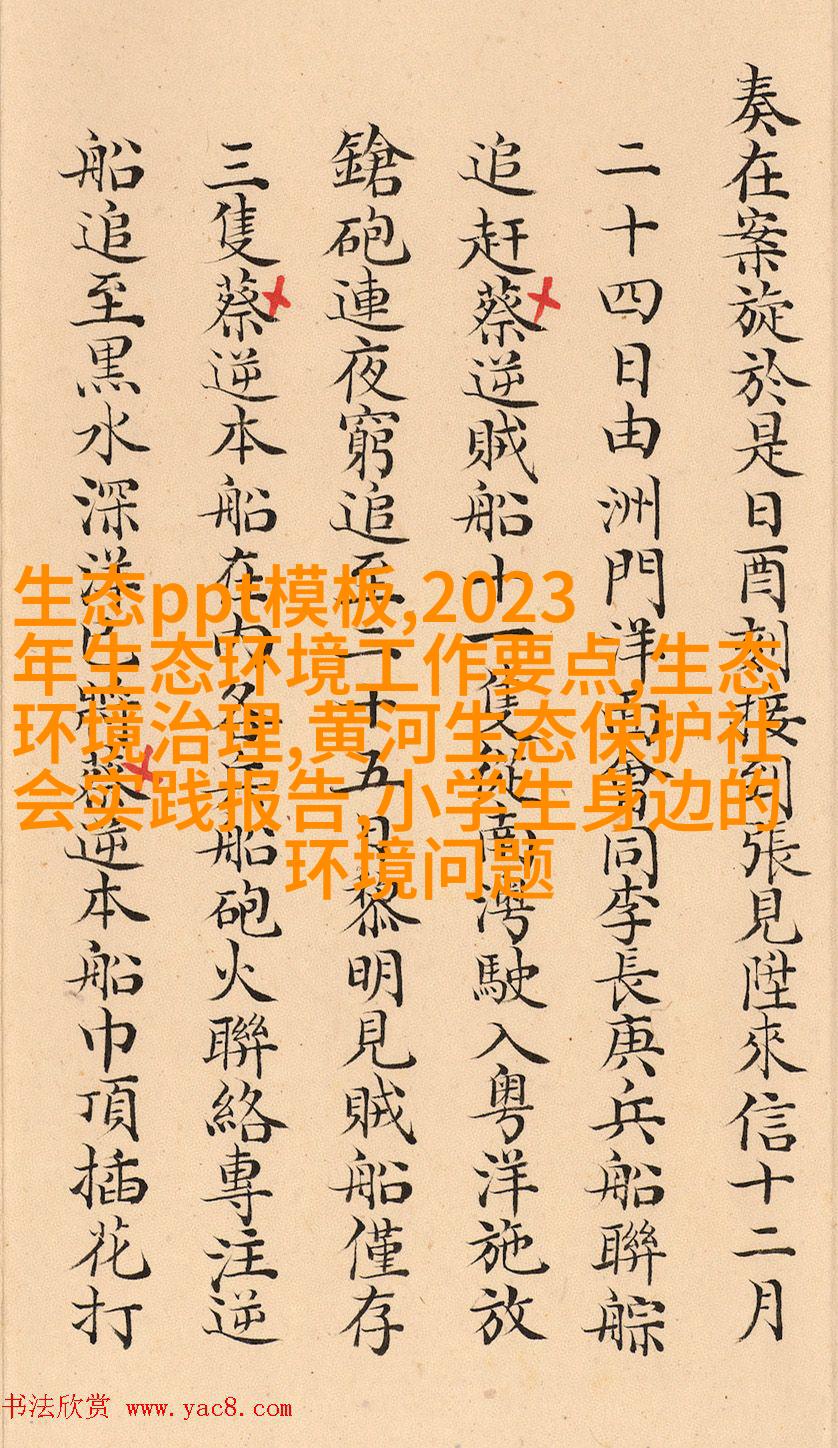 奏在案旋於是日酉刻接到張見陞來信十二月
二十四日由洲門洋面會同李長庚兵船聯䑸
追赶蔡逆賊船十一隻從南灣駛入粤洋施放
鎗砲連夜窮追至二十五日黎明見賊船僅存
三隻蔡逆本船在内各兵船砲火聯絡專注逆
船追至黒水深洋已蔡逆本船巾頂插花打
生态ppt模板,2023
年生态环境工作要点,生态
环境治理,黄河生态保护社
会实践报告,小学生身边的
环境问题
书法欣赏 www.yac8.com